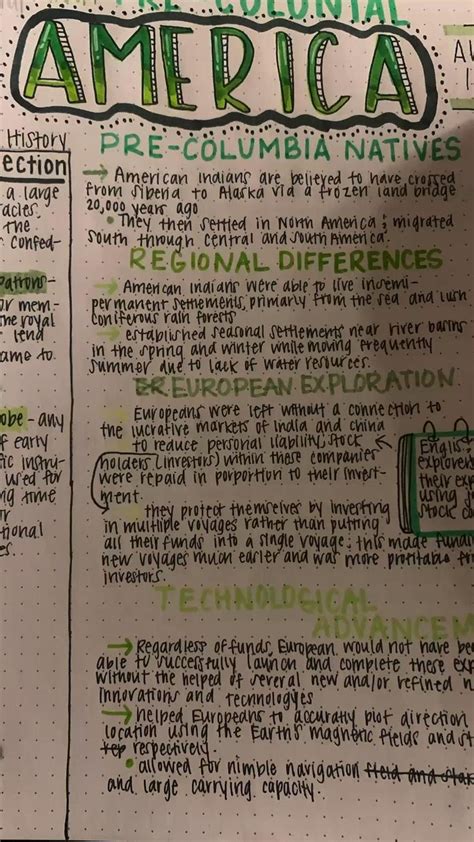 PRE-COLONIAL
AMERICA
History
ection
a large
acles.
the
confed-
patrons-
or mem-
the royal
lend
ame to
obe - any
f early
fic instru-
used for
ng time
or
tional
es.
PRE-COLUMBIA NATIVES
→ American Indians are believed to have crossed
from Siberia to Alaska via a frozen land bridge
20,000 years ago
• They then settled in North America ; migrated
south through central and south America.
REGIONAL DIFFERENCES
→ American Indians were able to live in semi-
permanent settlements, primarily from the sea and lush
coniferous rain forests
→ established seasonal settlements near river basins
in the spring and winter while moving frequently
summer due to lack of water resources.
EUROPEAN EXPLORATION
→ Europeans were left without a connection to
the lucrative markets of India and china
→ to reduce personal liability, stock
holders (investors) within these companies
were repaid in porportion to their invest-
ment.
→ they protect themselves by investing
in multiple voyages rather than putting
all their funds into a single voyage ; this made fundi
new voyages much earier and was more profitable fr
investors.
Englis
explorer
their exp
using
stock c
TECHNOLOGICAL
ADVANCEM
→ Regardless of funds, European would not have be
able to successfully launch and complete these exp
without the helped of several new and/or refined n
innovations and technologyies
→ helped Europeans to accuratly plot direction
location using the Earth's magnetic fields and st
respectively.
• allowed for nimble navigation field and star
and large carrying capacity.